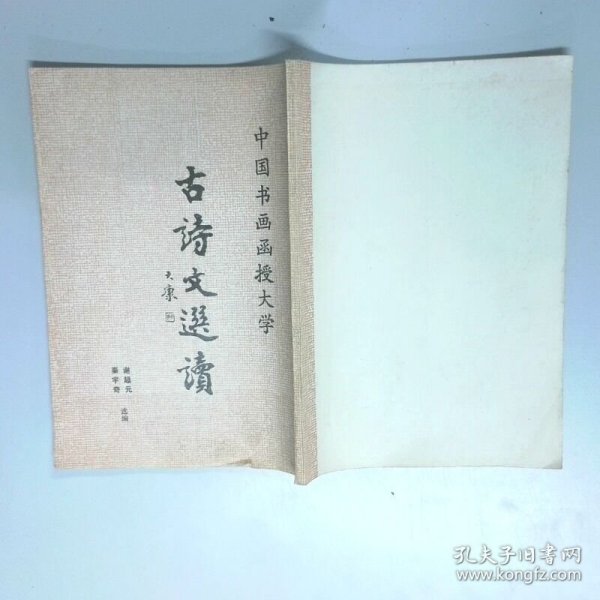 中国书画函授大学
古詩文選讀
大康
谢德元
秦宇奇
选编
孔夫子旧书网
www.kongfz.com